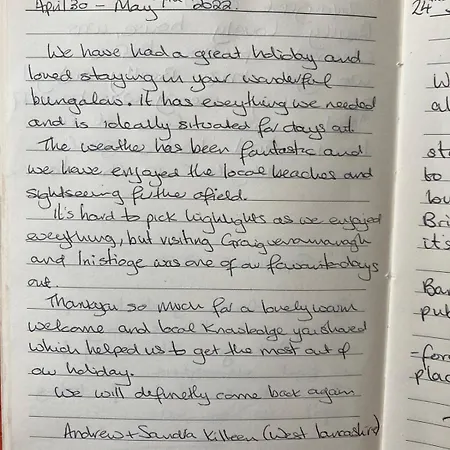 April 30 – May 7th 2022. 24
We have had a great holiday and
loved staying in your wonderful
bungalow. It has everything we needed
and is ideally situated for days out
The weather has been fantastic and
we have enjoyed the local beaches and
sightseeing further afield.
It's hard to pick highlights as we enjoyed
everything, but visiting Graiguenamanagh
and Inistioge was one of our favourite days
out.
Thankyou so much for a lovely warm
welcome and local knowledge you shared
which helped us to get the most out of
our holiday.
We will definetly come back again
Andrew + Sandra Killeen (West Lancashire)
W
al
sta
to
lou
Bri
it's
Ba
pub
=for
plac